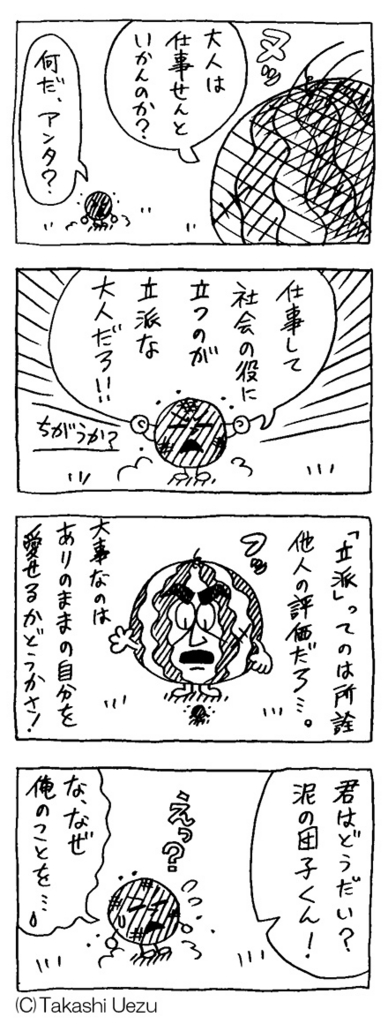 大人は
仕事せんと
いかんのか？
ヌッ
何だ、アンタ？
仕事して
社会の役に
立つのが
立派な
大人だろ!!
ちがうか？
「立派」ってのは所詮
他人の評価だろ…。
フッ
大事なのは
ありのままの自分を
愛せるかどうかさ！
君はどうだい？
泥の団子くん！
えっ？
な、なぜ
俺のことを…
(C)Takashi Uezu